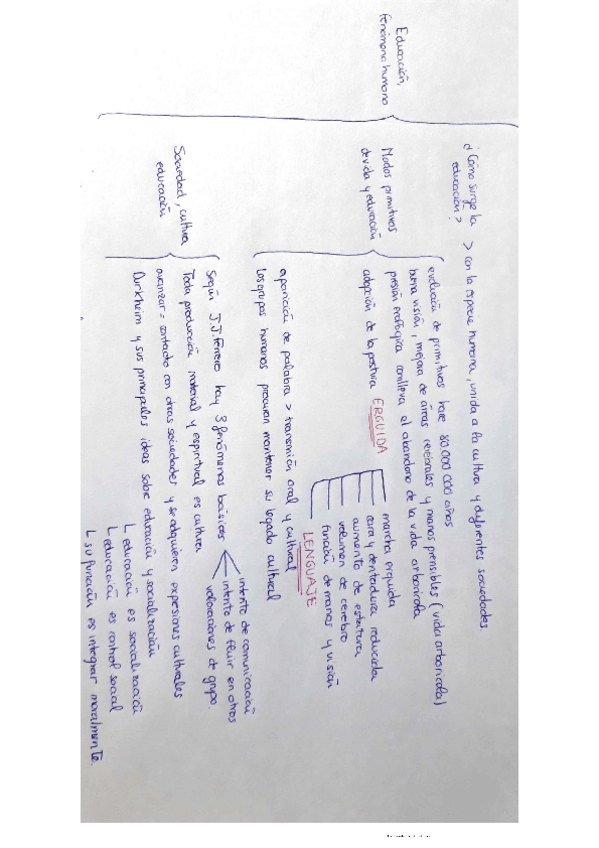 Educación,
fenómeno humano
¿Cómo surge la
educación?
> con la especie humana, unida a la cultura y diferentes sociedades
Modos primitivos
de vida y educación
evolución de primitivos hace 80.000 000 años
buena visión, mejora de áreas cerebrales y manos prensibles (vida arborícola)
presión ecológica conlleva al abandono de la vida arborícola
adopción de la postura ERGUIDA
marcha erguida
cara y dentadura reducida
aumento de estatura
volumen de cerebro
función de manos y visión
LENGUAJE
aparición de palabra > transmisión oral y cultural
los grupos humanos procuran mantener su legado cultural
Sociedad, cultura
educación
Según J.J. Ferrero hay 3 fenómenos básicos
intento de comunicación
intento de fluir en otros
valoraciones de grupo.
Toda producción material y espiritual es cultura
avanzar = contacto con otras sociedades y se adquieren expresiones culturales
Durkheim y sus principales ideas sobre educación y socialización
educación es socialización
educación es control social
su función es integrar moralmente.